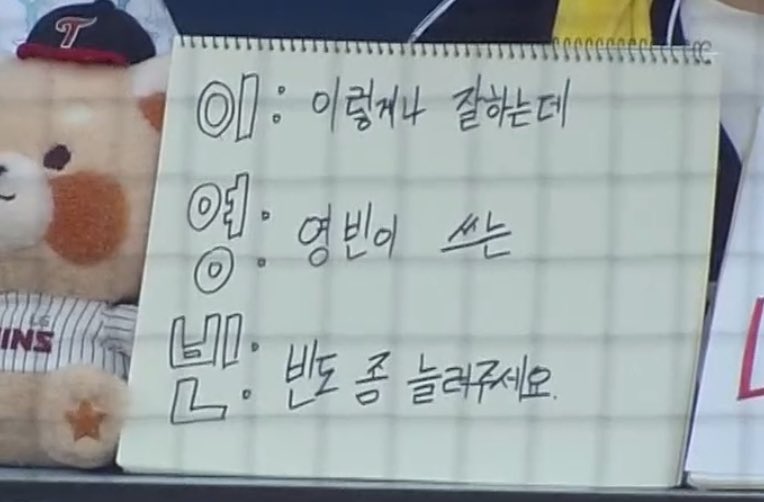 T
이: 이렇게나 잘하는데
영: 영빈이 쓰는
빈: 빈도 좀 늘려주세요.
LG
INS